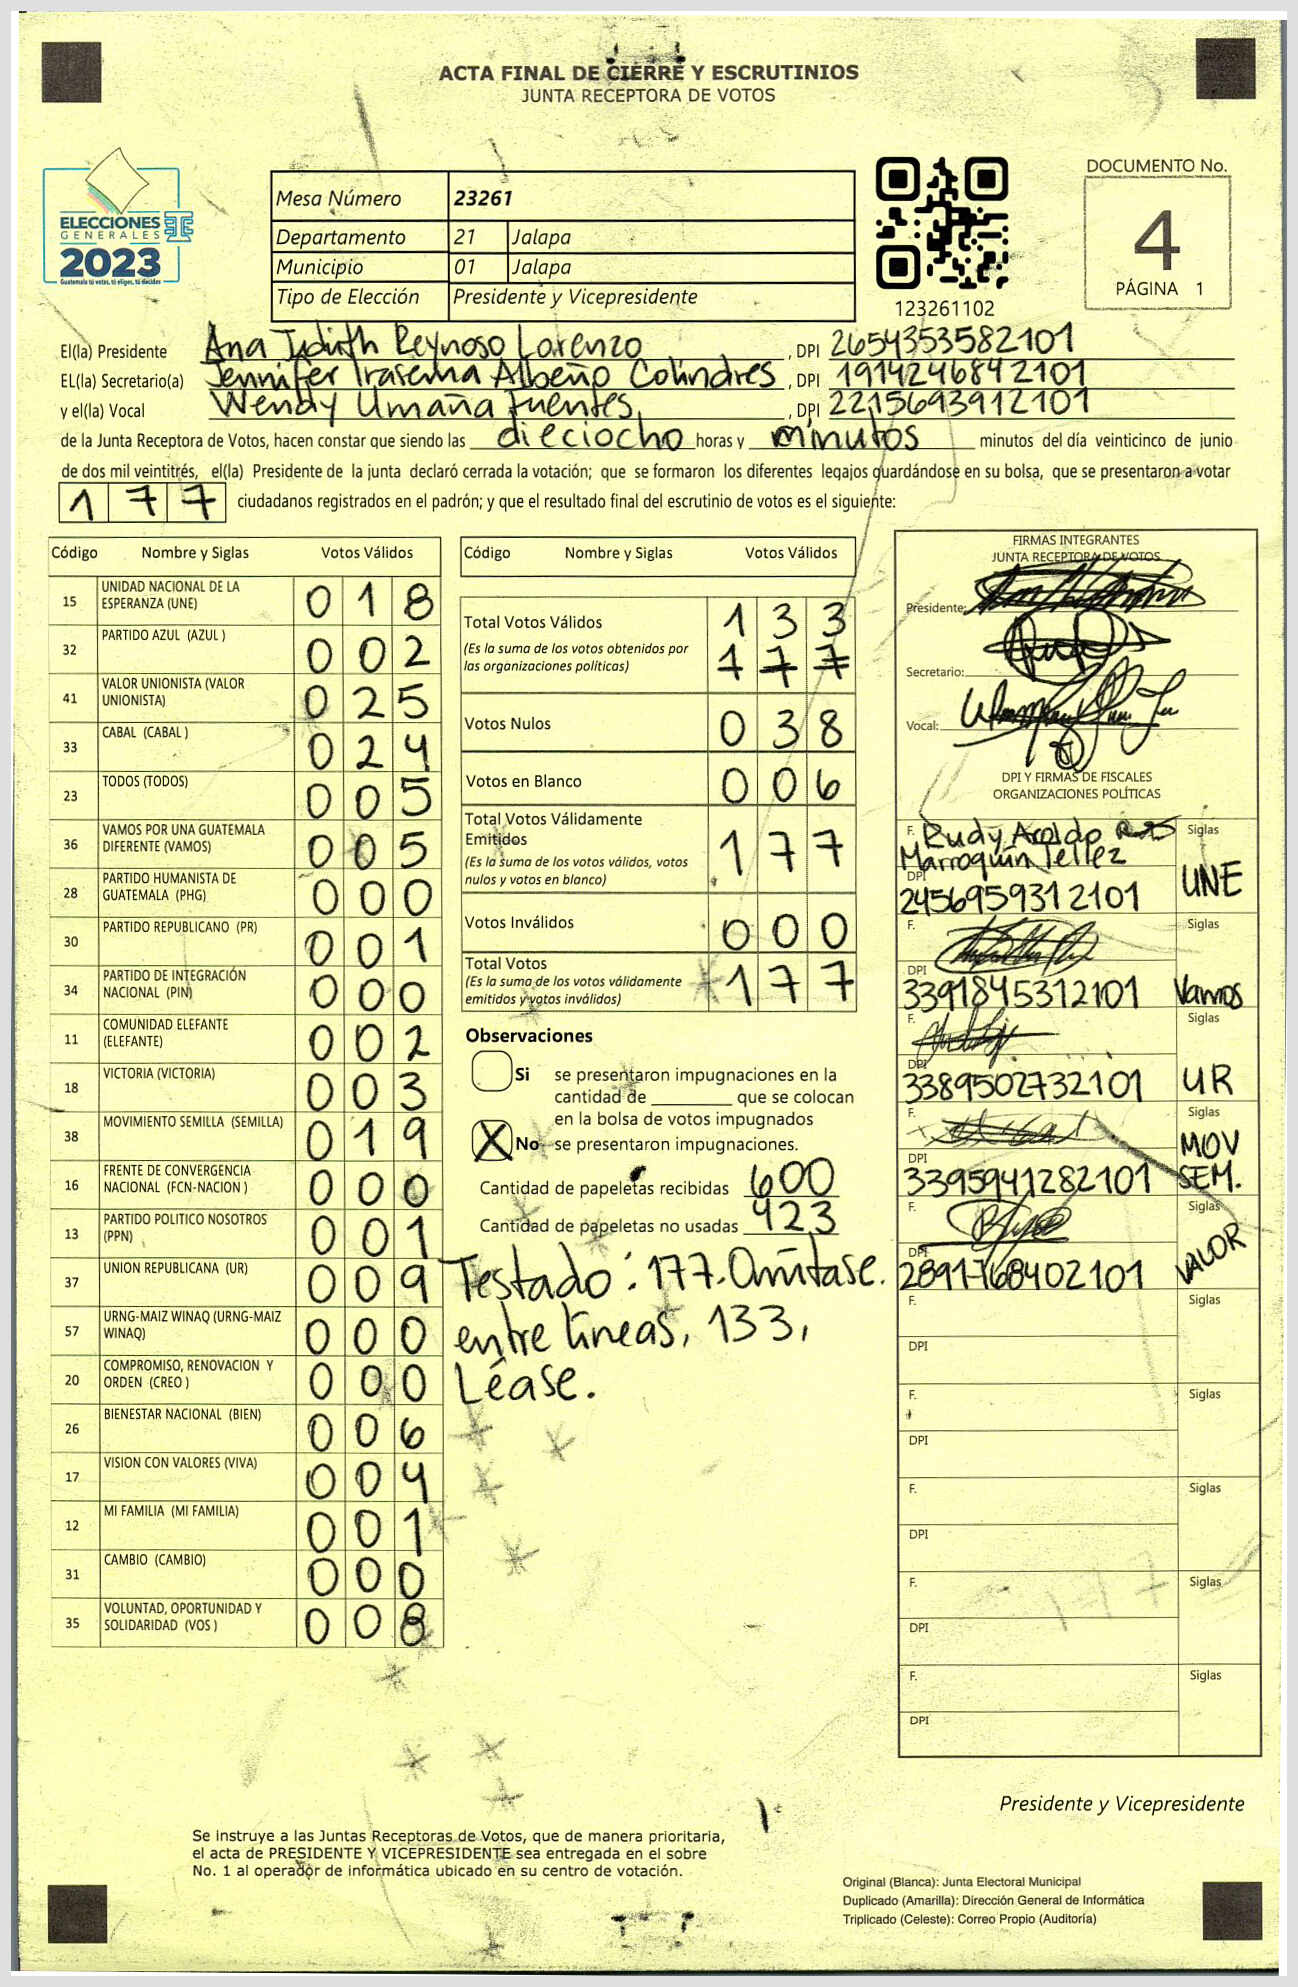 ACTA FINAL DE CIERRE Y ESCRUTINIOS
JUNTA RECEPTORA DE VOTOS
ELECCIONES
GENERALES
2023
Guatemala tú votas, tú eliges, tú decides
Mesa Número 23261
Departamento 21 Jalapa
Municipio 01 Jalapa
Tipo de Elección Presidente y Vicepresidente
123261102
DOCUMENTO No.
4
PÁGINA 1
El(la) Presidente Ana Judith Reynoso Lorenzo, DPI 2654353582101
EL(la) Secretario(a) Jennifer Irasema Albeño Colindres, DPI 1914246842101
y el(la) Vocal Wendy Umaña Fuentes, DPI 2215693912101
de la Junta Receptora de Votos, hacen constar que siendo las dieciocho horas y minutos minutos del día veinticinco de junio
de dos mil veintitrés, el(la) Presidente de la junta declaró cerrada la votación; que se formaron los diferentes legajos guardándose en su bolsa, que se presentaron a votar
177 ciudadanos registrados en el padrón; y que el resultado final del escrutinio de votos es el siguiente:
Código Nombre y Siglas Votos Válidos
15 UNIDAD NACIONAL DE LA
ESPERANZA (UNE) 018
32 PARTIDO AZUL (AZUL ) 002
41 VALOR UNIONISTA (VALOR
UNIONISTA) 025
33 CABAL (CABAL ) 024
23 TODOS (TODOS) 005
36 VAMOS POR UNA GUATEMALA
DIFERENTE (VAMOS) 005
28 PARTIDO HUMANISTA DE
GUATEMALA (PHG) 000
30 PARTIDO REPUBLICANO (PR) 001
34 PARTIDO DE INTEGRACIÓN
NACIONAL (PIN) 000
11 COMUNIDAD ELEFANTE
(ELEFANTE) 002
18 VICTORIA (VICTORIA) 003
38 MOVIMIENTO SEMILLA (SEMILLA) 019
16 FRENTE DE CONVERGENCIA
NACIONAL (FCN-NACION ) 000
13 PARTIDO POLITICO NOSOTROS
(PPN) 001
37 UNION REPUBLICANA (UR) 009
57 URNG-MAIZ WINAQ (URNG-MAIZ
WINAQ) 000
20 COMPROMISO, RENOVACION Y
ORDEN (CREO ) 000
26 BIENESTAR NACIONAL (BIEN) 006
17 VISION CON VALORES (VIVA) 004
12 MI FAMILIA (MI FAMILIA) 001
31 CAMBIO (CAMBIO) 000
35 VOLUNTAD, OPORTUNIDAD Y
SOLIDARIDAD (VOS ) 008
Código Nombre y Siglas Votos Válidos
Total Votos Válidos 133
(Es la suma de los votos obtenidos por
las organizaciones políticas) 177
Votos Nulos 038
Votos en Blanco 006
Total Votos Válidamente
Emitidos 177
(Es la suma de los votos válidos, votos
nulos y votos en blanco)
Votos Inválidos 000
Total Votos 177
(Es la suma de los votos válidamente
emitidos y votos inválidos)
Observaciones
Si se presentaron impugnaciones en la
cantidad de ________ que se colocan
en la bolsa de votos impugnados
X No se presentaron impugnaciones.
Cantidad de papeletas recibidas 600
Cantidad de papeletas no usadas 423
Testado: 177. Omítase.
entre líneas, 133,
Léase.
FIRMAS INTEGRANTES
JUNTA RECEPTORA DE VOTOS
Presidente:
Secretario:
Vocal:
DPI Y FIRMAS DE FISCALES
ORGANIZACIONES POLÍTICAS
F. Rudy Aroldo Siglas
Marroquín Tellez
DPI
2456959312101 UNE
F. Siglas
DPI
3391845312101 Vamos
F. Siglas
DPI
3389502732101 UR
F. Siglas
MOV
DPI
3395941282101 SEM.
F. Siglas
DPI
2891768402101 VALOR
F. Siglas
DPI
F. Siglas
DPI
F. Siglas
DPI
F. Siglas
DPI
F. Siglas
DPI
Presidente y Vicepresidente
Se instruye a las Juntas Receptoras de Votos, que de manera prioritaria,
el acta de PRESIDENTE Y VICEPRESIDENTE sea entregada en el sobre
No. 1 al operador de informática ubicado en su centro de votación.
Original (Blanca): Junta Electoral Municipal
Duplicado (Amarilla): Dirección General de Informática
Triplicado (Celeste): Correo Propio (Auditoría)